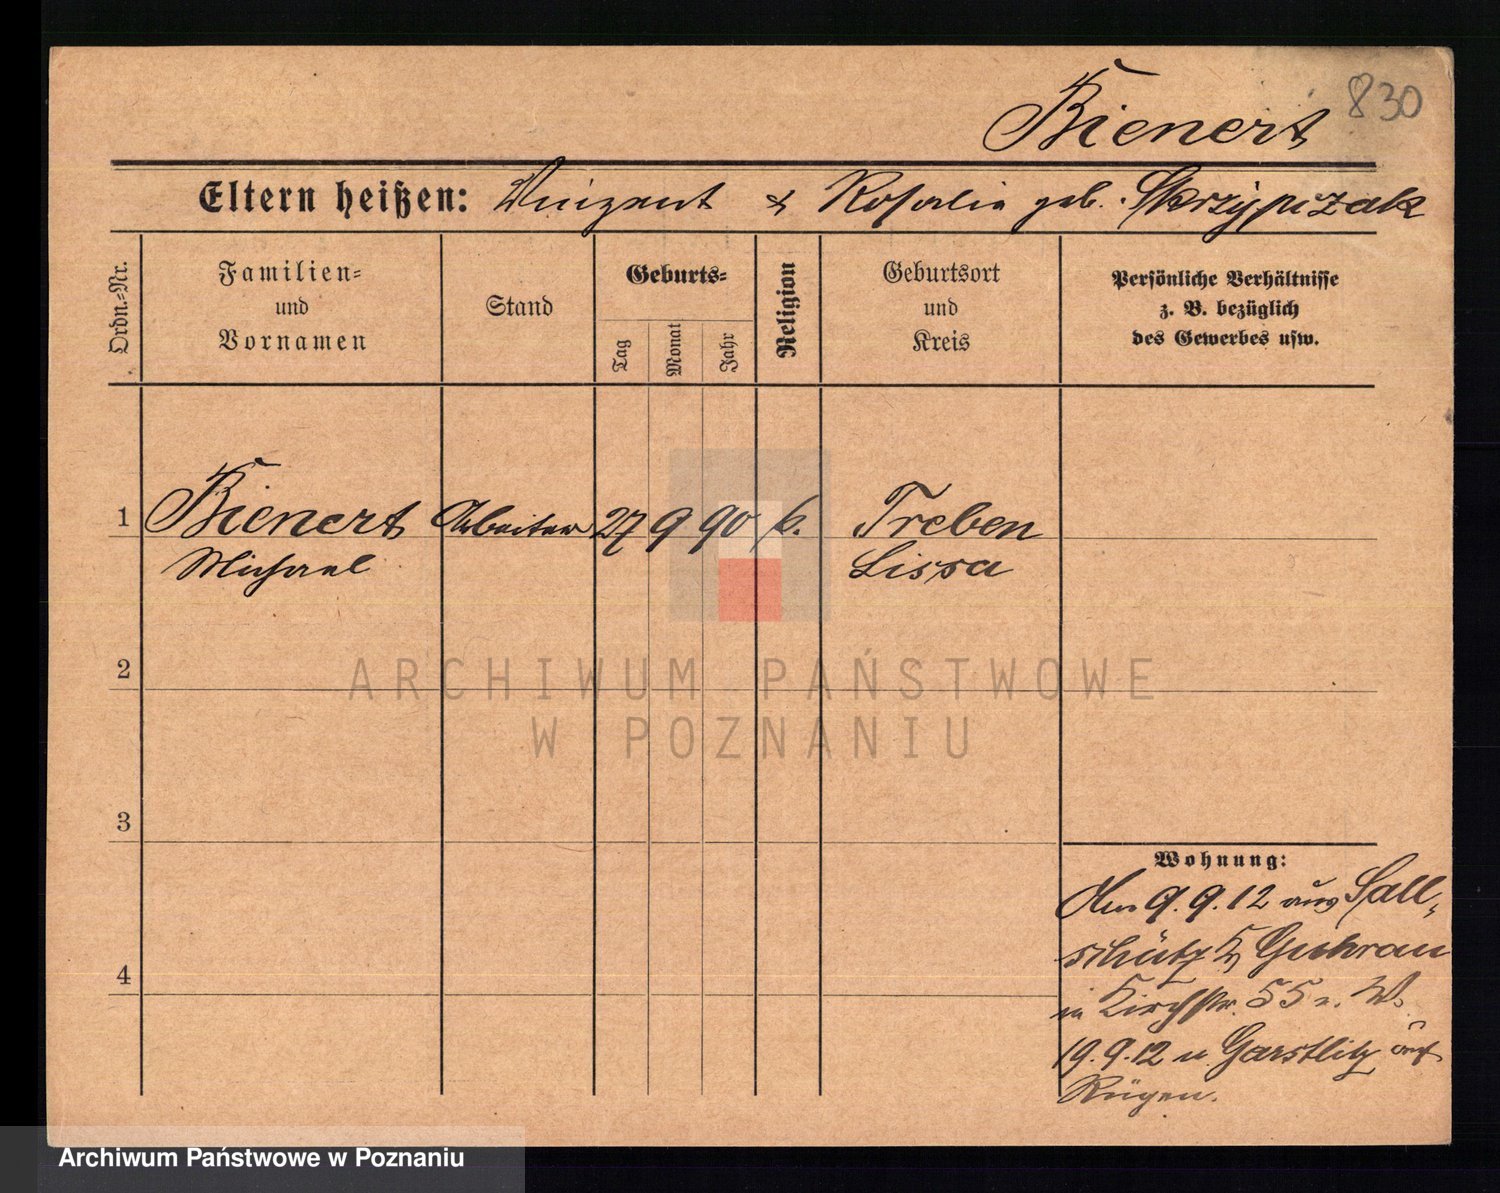 830
Bienert
Eltern heißen: Vinzent & Rosalie geb. Skrzypizak
Ordn.-Nr.
Familien- und Vornamen
Stand
Geburts-
Tag
Monat
Jahr
Religion
Geburtsort und Kreis
Persönliche Verhältnisse
z. B. bezüglich
des Gewerbes usw.
1 Bienert Arbeiter 27 9 90 k. Treben
Michael Lissa
2
3
4
Wohnung:
Am 9.9.12 aus Sall-
schütz Kr Guhrau
in Kirchstr. 55 z. W.
19.9.12 n. Garstlitz auf
Rügen.
ARCHIWUM PAŃSTWOWE
W POZNANIU
Archiwum Państwowe w Poznaniu